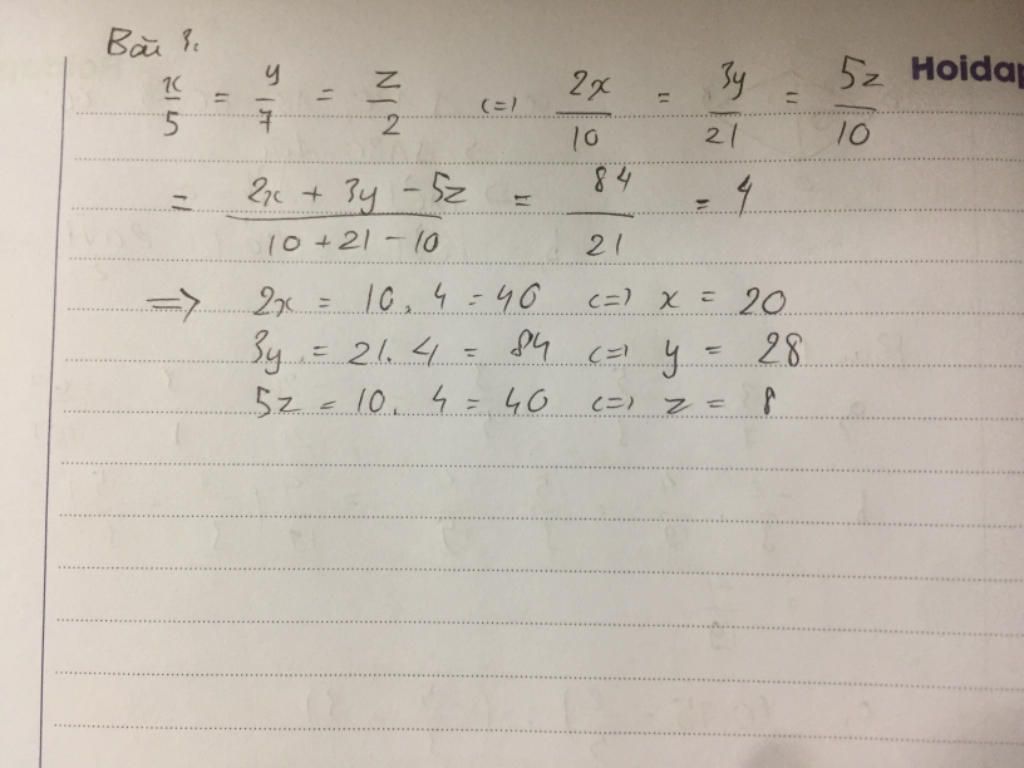 Bài 3:
x/5 = y/7 = z/2 (=) 2x/10 = 3y/21 = 5z/10
= (2x + 3y - 5z)/(10 + 21 - 10) = 84/21 = 4
=> 2x = 10. 4 = 40 (=) x = 20
3y = 21. 4 = 84 (=) y = 28
5z = 10. 4 = 40 (=) z = 8
Hoidap